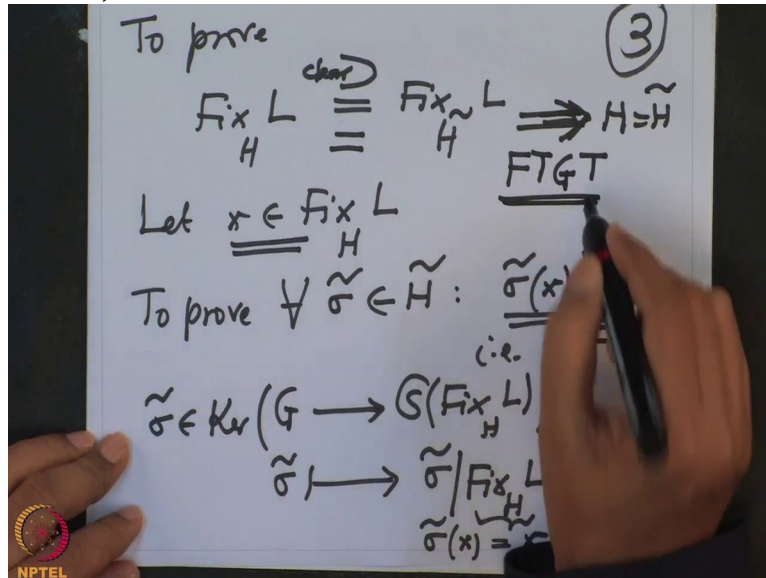 To prove
③
clear
Fix_H L = Fix_H̃ L ⟹ H = H̃
FTGT
Let x ∈ Fix_H L
To prove ∀ σ̃ ∈ H̃ : σ̃(x)
i.e.
σ̃ ∈ Ker (G ⟶ S(Fix_H L)
σ̃ ⟼ σ̃ | Fix_H L
σ̃(x) =
NPTEL